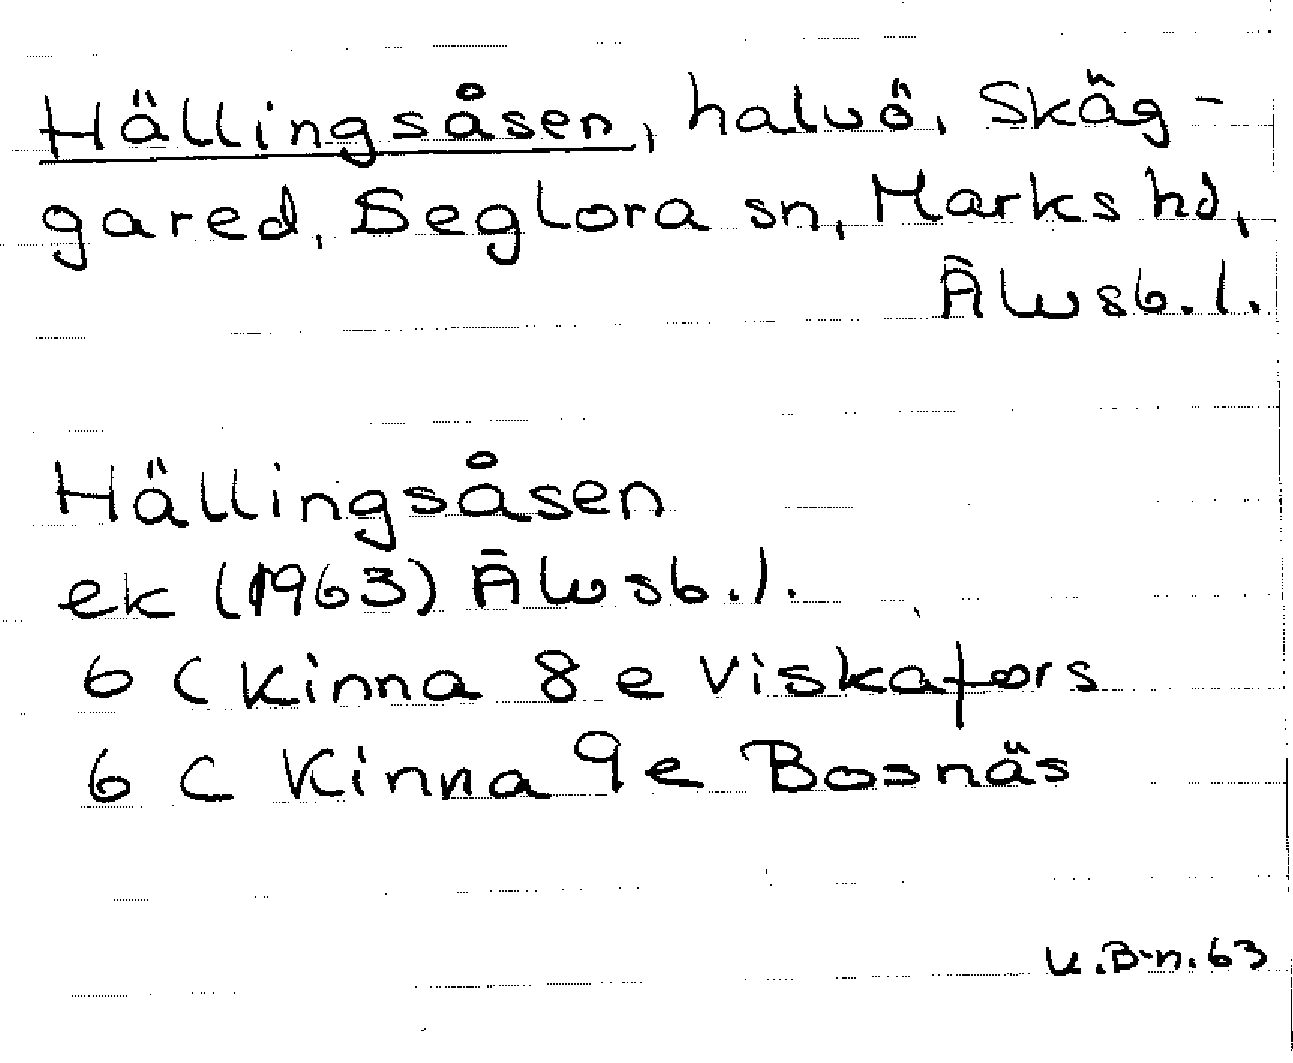 Hällingsåsen, halvö, Skäg-
gared, Seglora sn, Marks hd,
Älvsb. l.
Hällingsåsen
ek (1963) Älvsb. l.
6 C Kinna 8 e Viskafors
6 C Kinna 9 e Bosnäs
K.B-n. 63